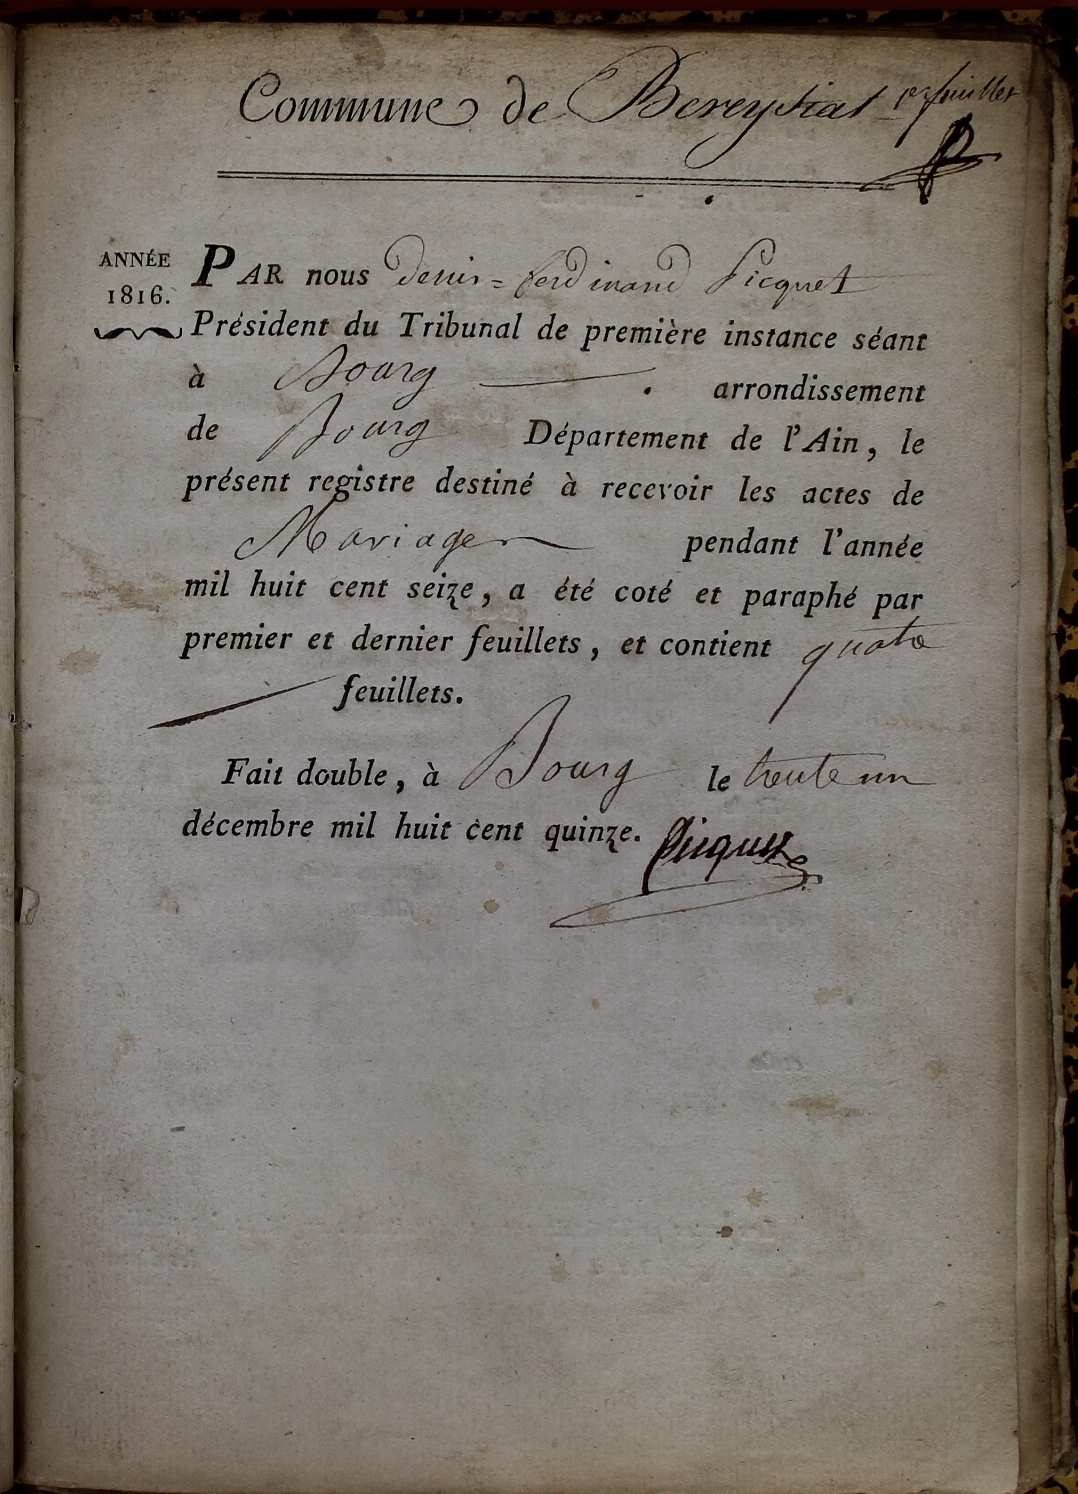 Commune de Bereyziat 1er feuillet
ANNÉE
1816.
PAR nous Denis=ferdinand Picquet
Président du Tribunal de première instance séant
à Bourg arrondissement
de Bourg Département de l'Ain, le
présent registre destiné à recevoir les actes de
Mariages pendant l'année
mil huit cent seize, a été coté et paraphé par
premier et dernier feuillets, et contient quatre
feuillets.
Fait double, à Bourg le trente un
décembre mil huit cent quinze. Picquet